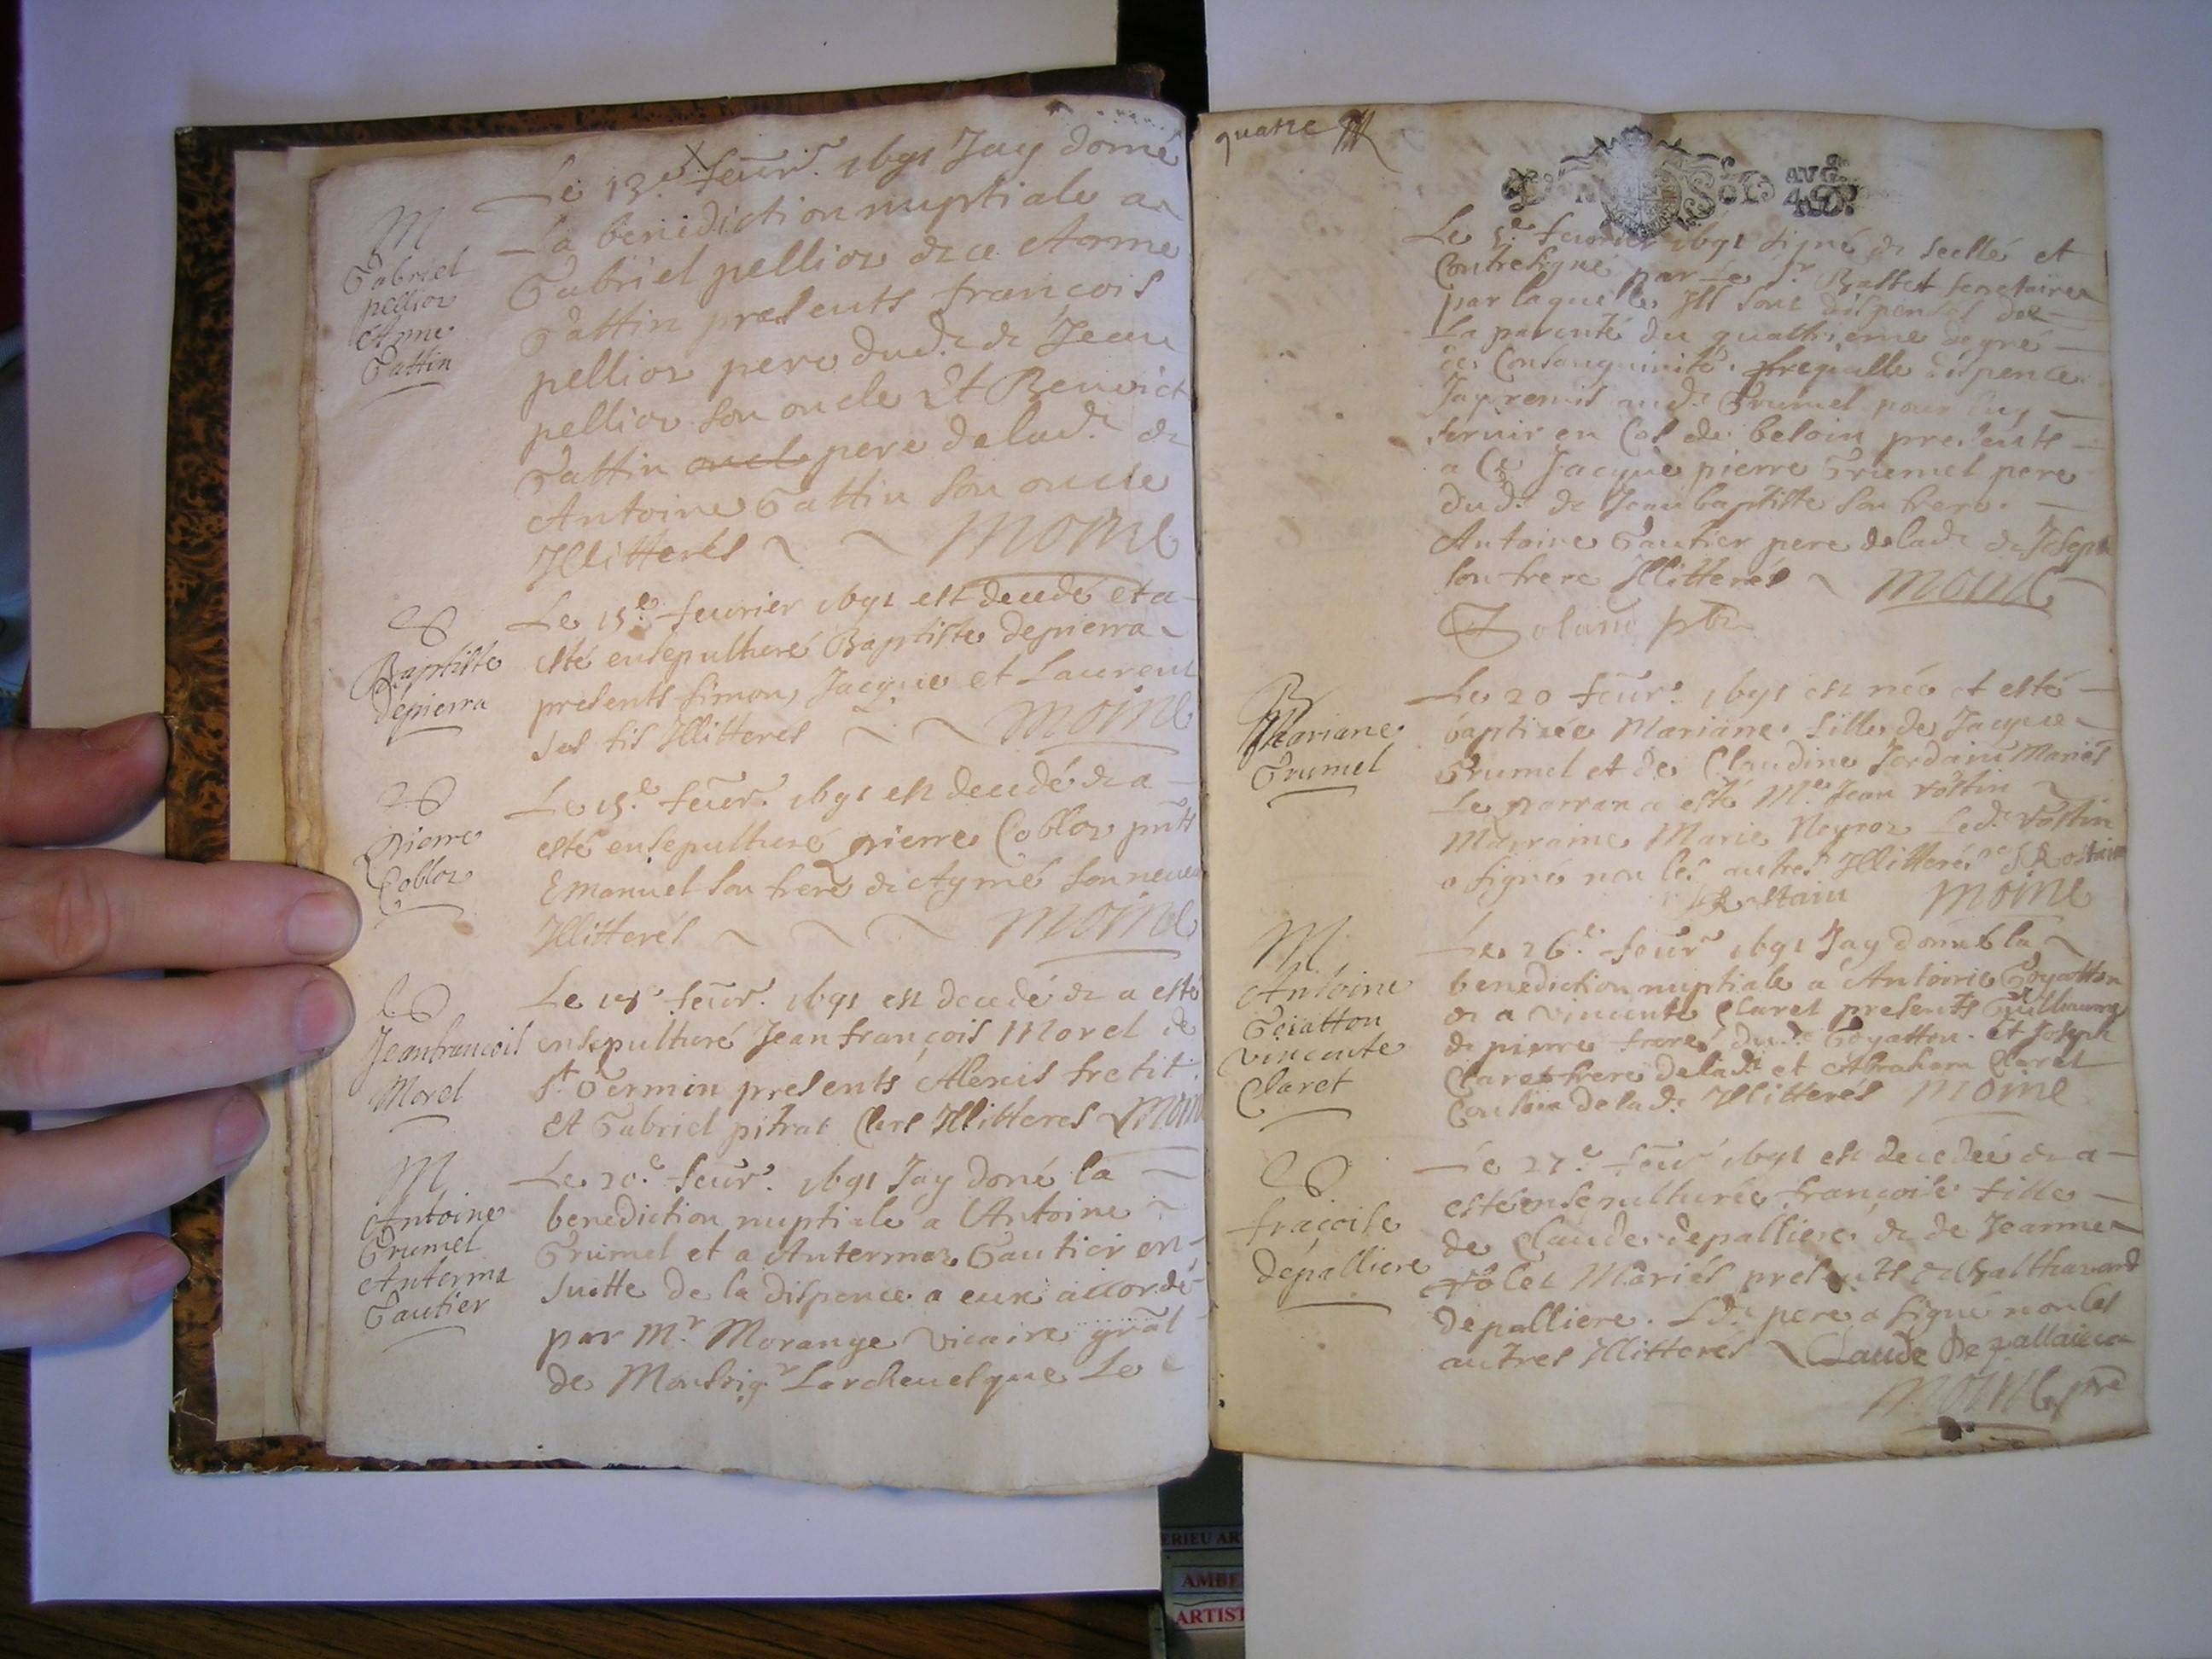 M
Gabriel
pellioz
Anne
Gattin
Le 13e feur. 1691 Jay donné
La benediction nuptiale a
Gabriel pellioz & a Anne
Gattin presents françois
pellioz pere dud. & Jean
pellioz son oncle Et Benoict
Gattin oncle pere delad. &
Antoine Gattin son oncle
Illitterés Moine
Baptiste
depierra
Le 15e feurier 1691 est decedé et a
esté ensepulturé Baptiste depierra
presents simon, Jacque et Laurent
ses fis Illitteres Moine
pierre
Cobloz
Le 15e feur. 1691 est decedé & a
esté ensepulturé pierre Cobloz pnts
Emanuel son frere & Aymé son neueu
Illitterés Moine
Jeanfrancois
Morel
Le 18e feur. 1691 est decedé & a esté
ensepulturé Jean françois Morel de
st Germin presents Alexis fretit
Et Gabriel pitrat Clers Illitteres Moin
M
Antoine
Grumel
Anterma
Gautier
Le 20e feur. 1691 Jay doné la
benediction nuptiale a Antoine
Grumel et a Antermaz Gautier en
suitte de la dispence a eux accordé
par Mr Morange vicaire gnal
de Monseigr Larcheuesque Le
quatre
AVG.
Le 5e feurier 1691 signé & scellé et
Contresigné par Le Sr Basset secretaire
par laquelle Ill sont dispensés de
La parenté du quattrieme degré
de Consanguinité. Laquelle dispence
Jay remis aud. Grumel pour luy
seruir en Cas de besoin presents
a Ce Jacque pierre Grumel pere
dud. & Jean baptiste son frere
Antoine Gautier pere delad. & Joseph
son frere Illitterés Moine
Mariane
Grumel
Le 20 feur. 1691 est née et esté
baptizée Mariane fille de Jacque
Grumel et de Claudine Jordain Mariés
Le parran a esté Me Jean rostin
Marraine Marie Neyroz Led. rostin
a signé non les autres Illitterés
Moine
M
Antoine
Goiatton
vincente
Claret
Le 26e feur 1691 Jay donné la
benediction nuptiale a Antoine Goyatton
& a vincente Claret presents Guillaume
& pierre freres dud. Goyatton et Joseph
Claret frere delad. et Abraham Claret
Cousin delad. Illitterés Moine
fraçoise
depalliere
Le 27e feur 1691 est decedée & a
esté ensepulturée françoise fille
de Claude depalliere & de Jeanne
rolet Mariés presents & Balthazard
depalliere. Ld. pere a signé non les
autres Illitterés Claude Depallaiere
Moine pre